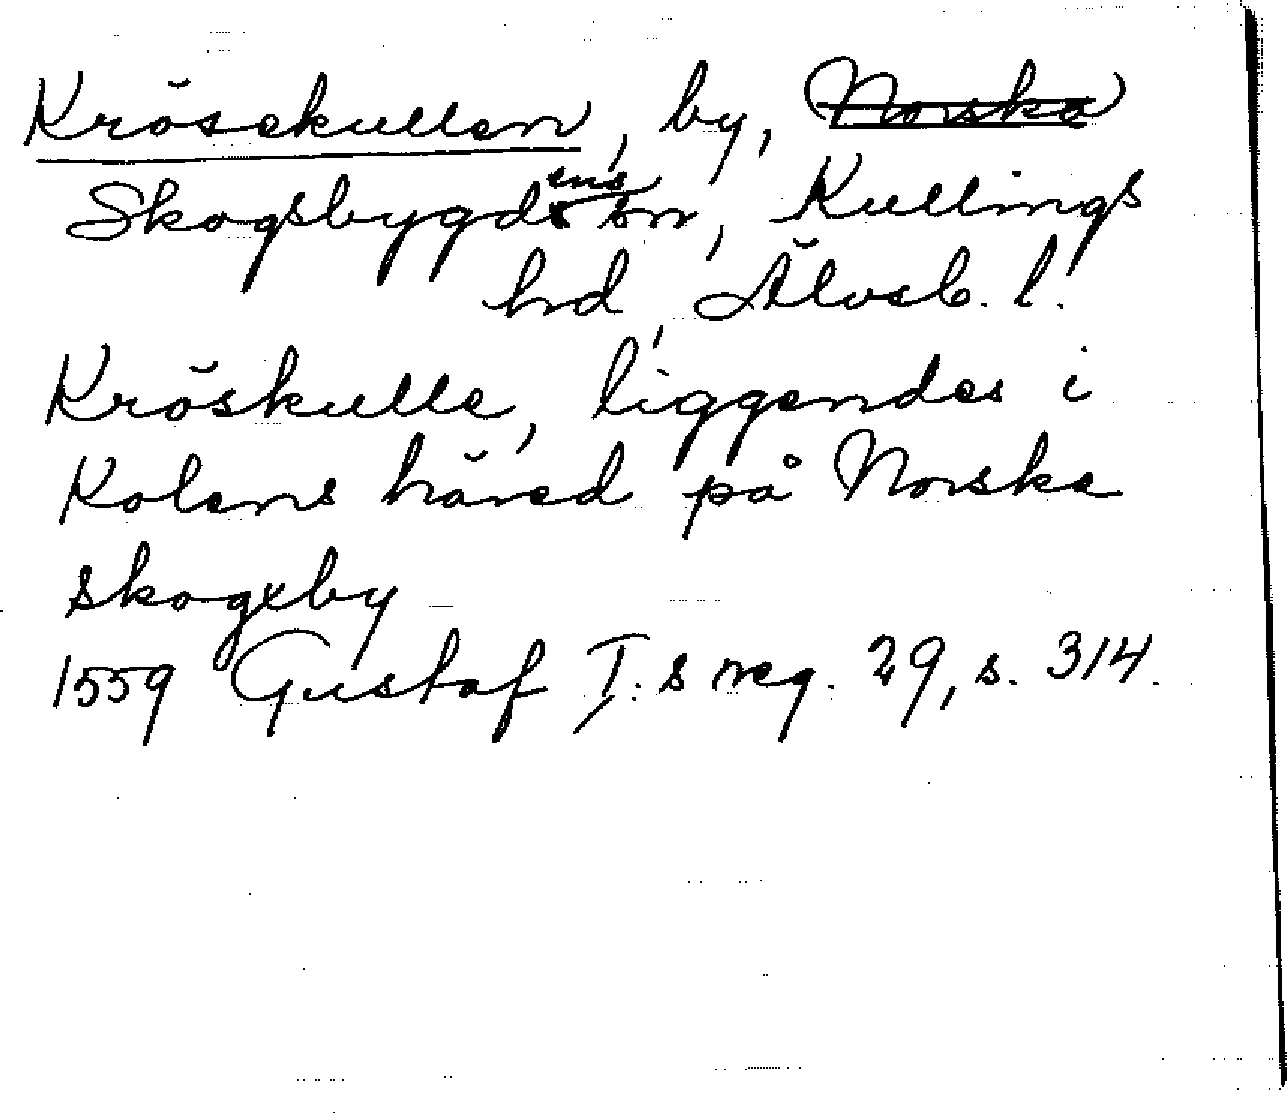 Krösekullen, by, Norska
Skogsbygdens sn, Kullings
hd, Älvsb. l.
Kröskulle, liggendes i
Kolens häred på Norske
skogxby
1559 Gustaf I:s reg. 29, s. 314.